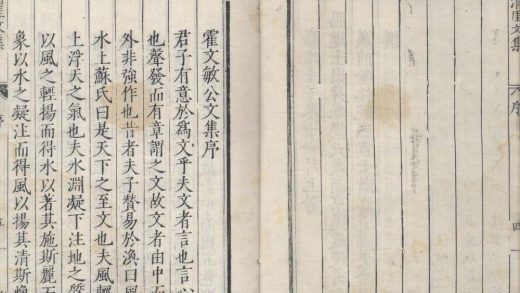 文集
序
四
霍文敏公文集序
君子有意於爲文乎夫文者言也言心
也聲發而有章謂之文故文者由中而
外非強作也昔者夫子贊易於渙曰風
水上蘇氏曰是天下之至文也夫風輕
上浮天之氣也夫水淵凝下注地之質
以風之輕揚而得水以著其施斯麗
象以水之凝注而得風以揚其清斯煥
文集
序
五